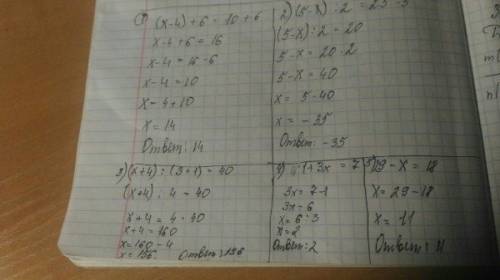 1) (x-4)+6 = 10+6
x-4+6 = 16
x-4 = 16-6
x-4 = 10
x = 4+10
x = 14
Ответ: 14
2) (5-x) : 2 = 25-5
(5-x) : 2 = 20
5-x = 20·2
5-x = 40
x = 5-40
x = -35
Ответ: -35
3) (x+4) : (3+1) = 40
(x+4) : 4 = 40
x+4 = 4·40
x+4 = 160
x = 160-4
x = 156 Ответ: 156
4) 1+3x = 7
3x = 7-1
3x = 6
x = 6:3
x = 2
Ответ: 2
5) 29-x = 18
x = 29-18
x = 11
Ответ: 11